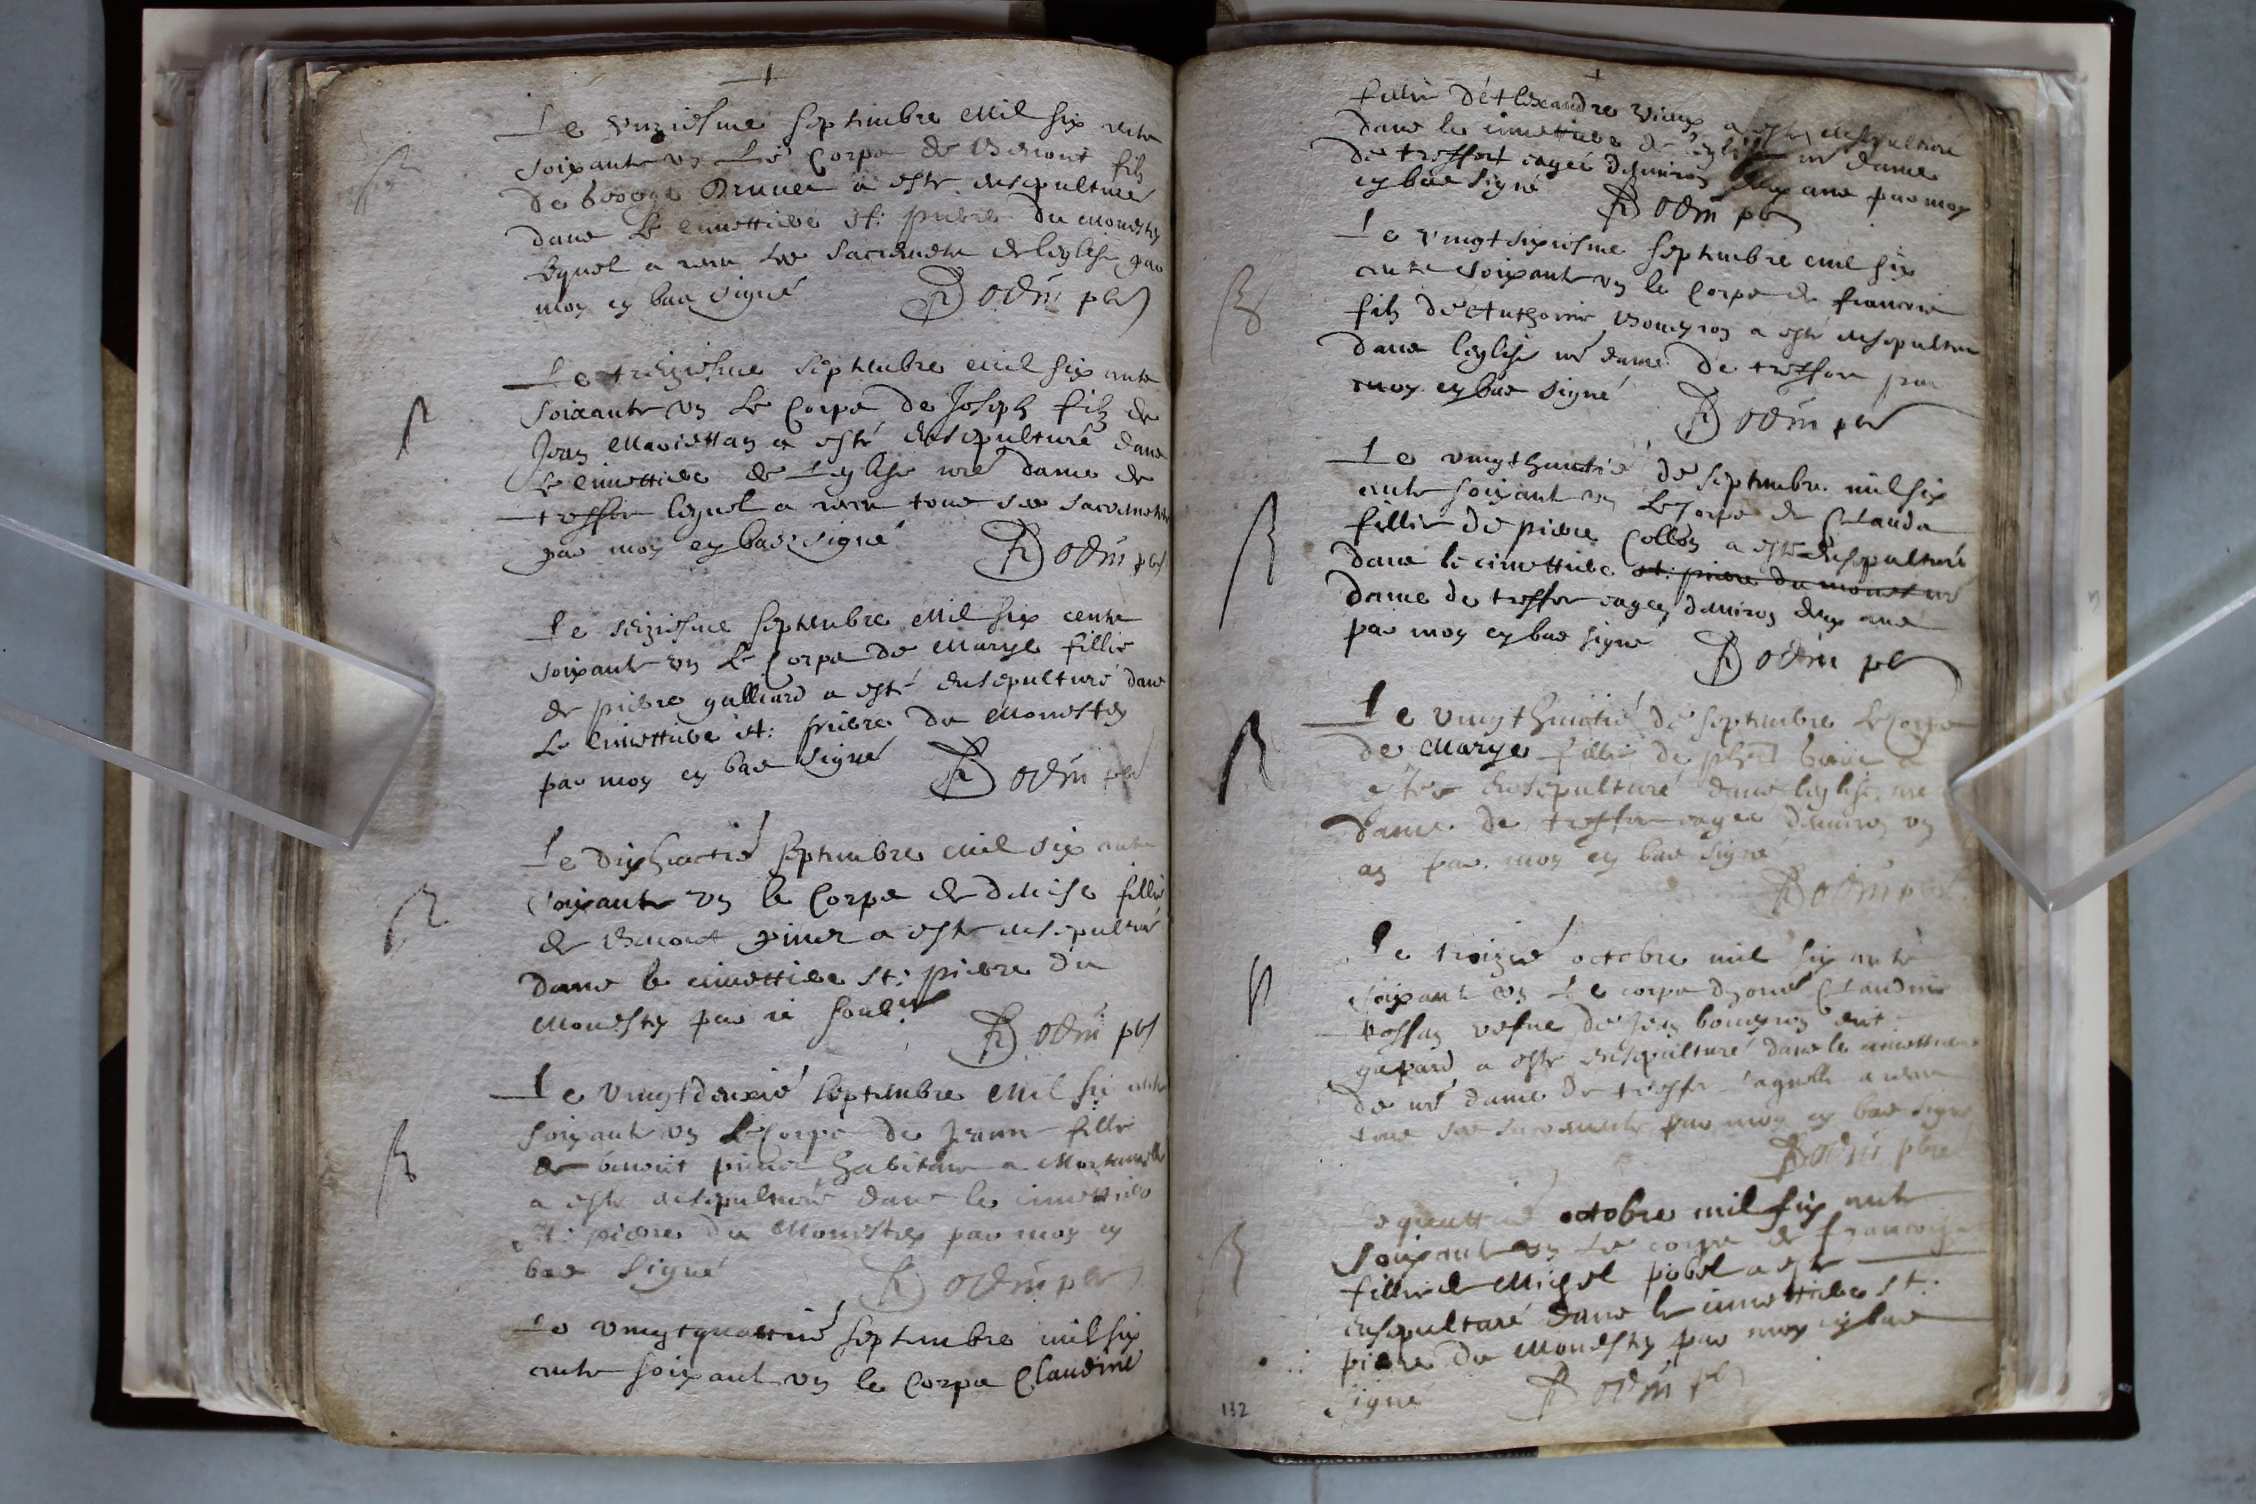 Le unziesme septembre mil six cents
soixante un Le Corps de Benoit filz
de George Brunet a esté ensepulturé
dans Le cimettiere st: pierre du monestey
lequel a receu les sacrements de leglise par
moy cy bas signé Rodin pbr
Le treziesme septembre mil six cents
soixante un Le Corps de Joseph filz de
Jean Marietton a esté ensepulturé dans
Le cimettiere de Leglise nre dame de
treffor lequel a receu tous ses sacrements
par moy cy bas signé Rodin pbr
Le seiziesme septembre mil six cents
soixante un Le Corps de Marye fillie
de pierre galliard a esté ensepulturé dans
Le cimettiere st: pierre du Monestey
par moy cy bas signé Rodin pbr
Le dixhuictié septembre mil six cents
soixante un le Corps de denise fillie
de Benoit a esté ensepulturé
dans le cimettiere st: pierre du
Monestey par Rodin pbr
Le vingtdeuxié septembre mil six cents
soixante un Le Corps de Jeanne fillie
de benoit habitans a
a esté ensepulturé dans le cimettiere
St: pierre du Monestey par moy cy
bas signé Rodin pbr
Le vingtquattrié septembre mil six
cents soixante un le Corps Claudine
fillie d'Alexandre vieux a esté ensepulturé
dans le cimettiere de leglise nre dame
de treffort eagée denviron ans par moy
cy bas signé Rodin pbr
Le vingtsixiesme septembre mil six
cents soixante un le Corps de francois
filz de Anthoine Bouvyron a esté ensepulturé
dans leglise nre dame de treffor par
moy cy bas signé Rodin pbr
Le vingthuictié de septembre mil six
cents soixante un Le Corps de Clauda
fillie de pierre Collon a esté ensepulturé
dans le cimettiere st: pierre du monest nre
dame de treffor eagée denviron deux ans
par moy cy bas signé Rodin pbr
Le vingthuictié de septembre Le Corps
de Marye fillie de a
estée ensepulturé dans leglise nre
dame de treffor eagée denviron un
an par moy cy bas signé
Rodin pbr
Le troizié octobre mil six cents
soixante un Le corps d'honé Claudine
vefve de Jean bouvyron dit
gapard a esté ensepulturé dans le cimettiere
de nre dame de treffor laquelle a receu
tous ses sacrements par moy cy bas signé
Rodin pbre
Le quattrié octobre mil six cents
soixante un Le corps de francoise
fillie de Michel pobel a esté
ensepulturé dans le cimettiere st:
pierre du Monestey par moy cy bas
signé Rodin pbr
132